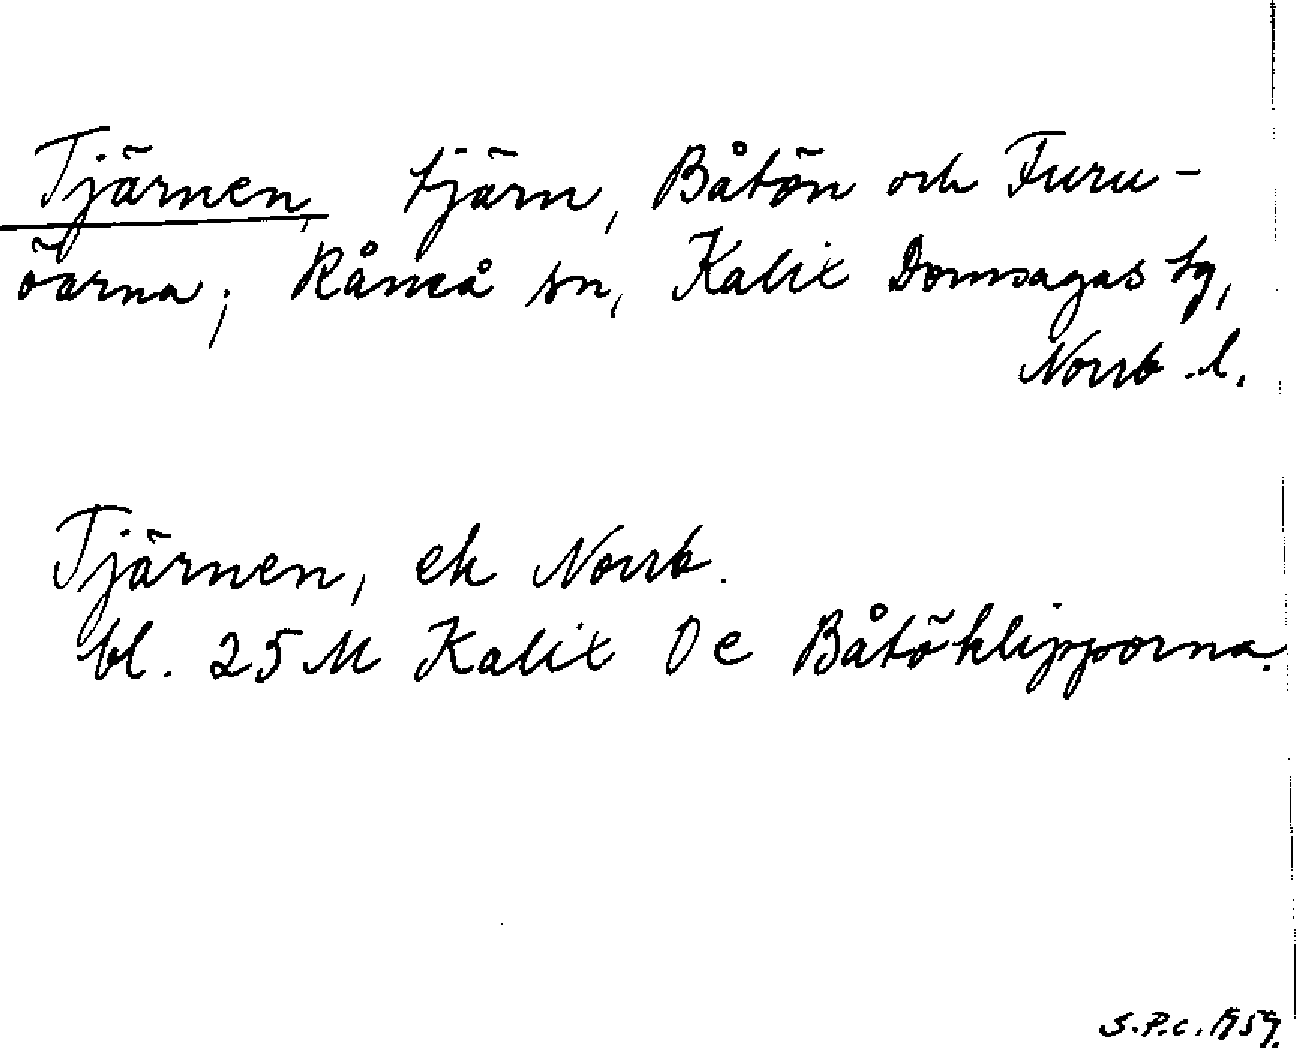 Tjärnen, tjärn, Båtön och Furu-
öarna; Råneå sn, Kalix Domsagas tg,
Norrb. l.
Tjärnen, ek Norrb.
bl. 25 M Kalix De Båtöklipporna.
S.P.c. 1959.